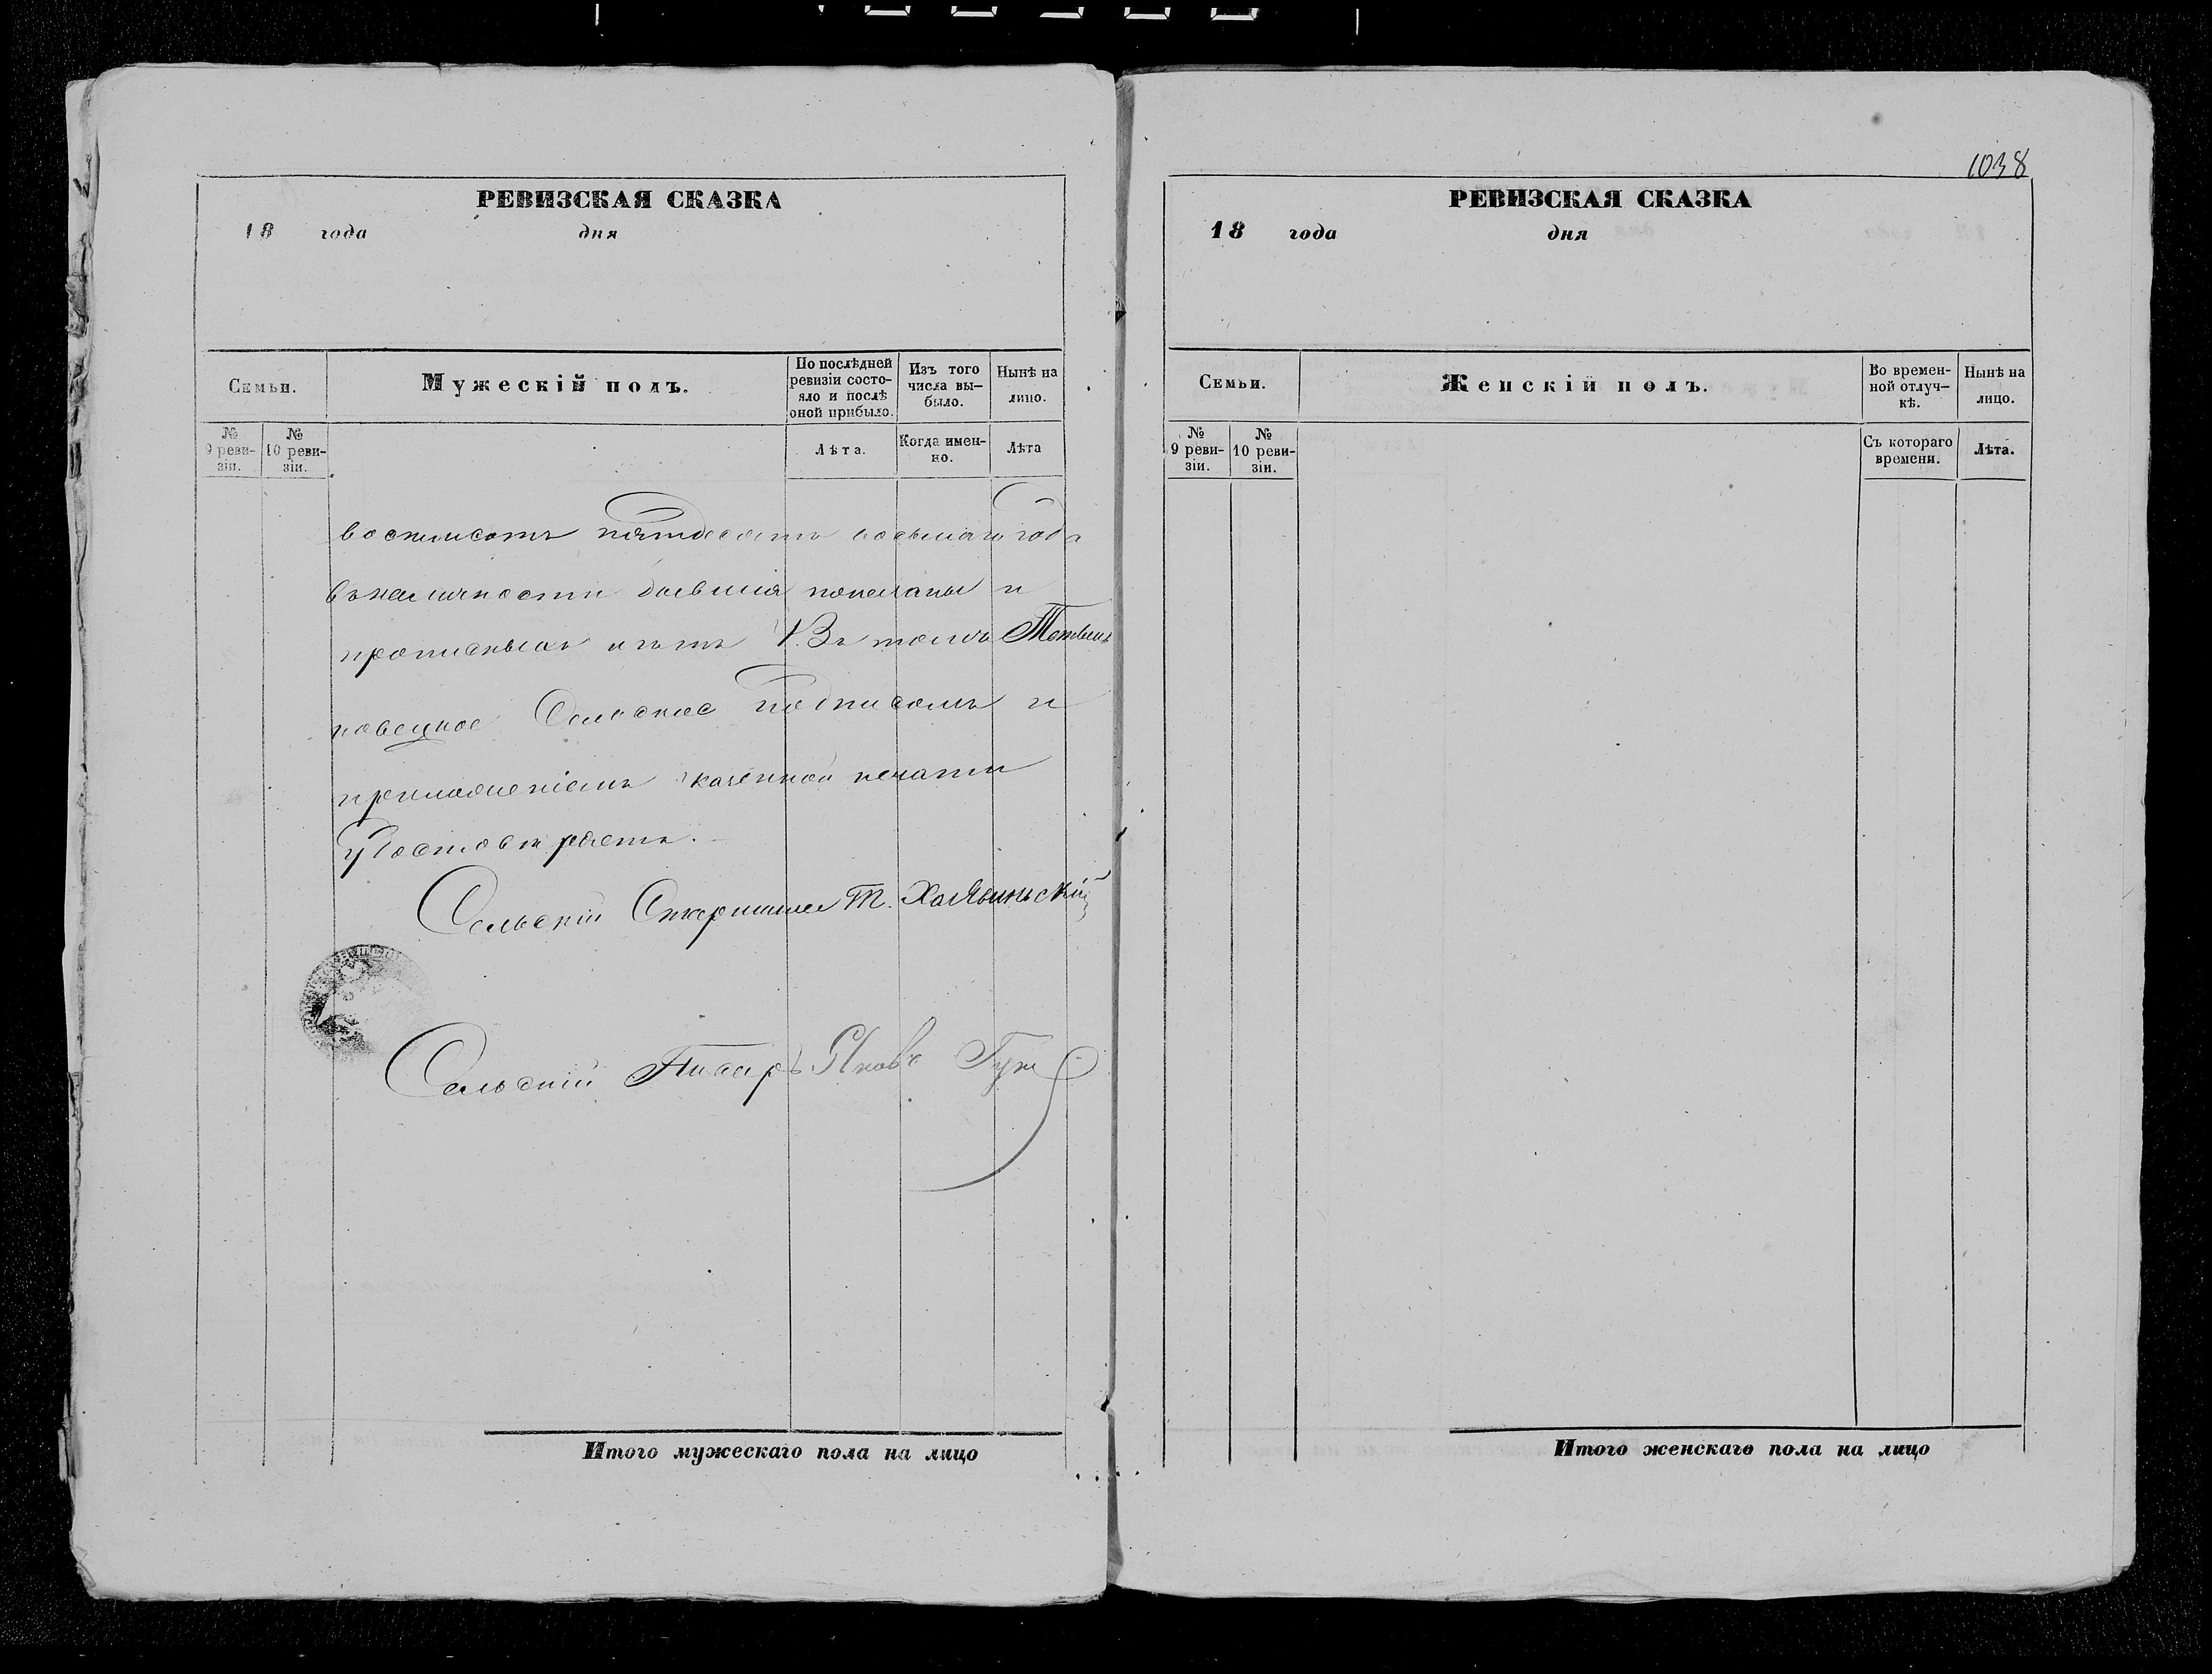 РЕВИЗСКАЯ СКАЗКА
18 года дня
Семьи.
Мужескій полъ.
По послѣдней ревизіи состо-
яло и послѣ оной прибыло.
Изъ того числа вы-
было.
Нынѣ на лицо.
№ 9 реви-
зіи.
№ 10 реви-
зіи.
Лѣта.
Когда имен-
но.
Лѣта
восьмисотъ пятдесятъ восьмаго года
въ наличности бывшія показаны и
прописныхъ нѣтъ В томъ
Сельское подписомъ и
приложеніемъ казенной печати
удостовѣряетъ.
Сельскій Старшина Т.
Сельскій Писарь Яковъ
Итого мужескаго пола на лицо
1038
РЕВИЗСКАЯ СКАЗКА
18 года дня
Семьи.
Женскій полъ.
Во времен-
ной отлуч-
кѣ.
Нынѣ на лицо.
№ 9 реви-
зіи.
№ 10 реви-
зіи.
Съ котораго времени.
Лѣта.
Итого женскаго пола на лицо